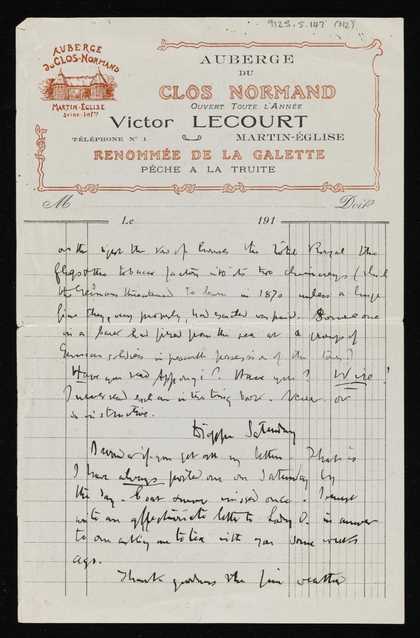 9125.5.147 (1/2)
AUBERGE
DU CLOS-NORMAND
MARTIN-EGLISE
SEINE-INFre
AUBERGE
DU
CLOS NORMAND
OUVERT TOUTE L'ANNÉE
Victor LECOURT
TÉLÉPHONE N° 1 MARTIN-ÉGLISE
RENOMMÉE DE LA GALETTE
PÊCHE A LA TRUITE
M
Le 191 Doit
on the right the row of houses the Hotel Royal the
flags & the tobacco factory with its two chimneys (which
the Germans threatened to burn in 1870 unless a huge
fine they, very properly, had exacted was paid. Someone
in a boat had fired from the sea at a group of
German soldiers in possession of the town)
Have you read ? Have you? Write!
I never read such an interesting book. Never or
so instructive.
Dieppe Saturday
I wonder if you got all my letters. That is
I have always posted one on Saturday by
the day-boat & never missed once. I must
write an affectionate letter to Lady O. in answer
to one asking me to tea with you some weeks
ago.
Thank goodness the fine weather